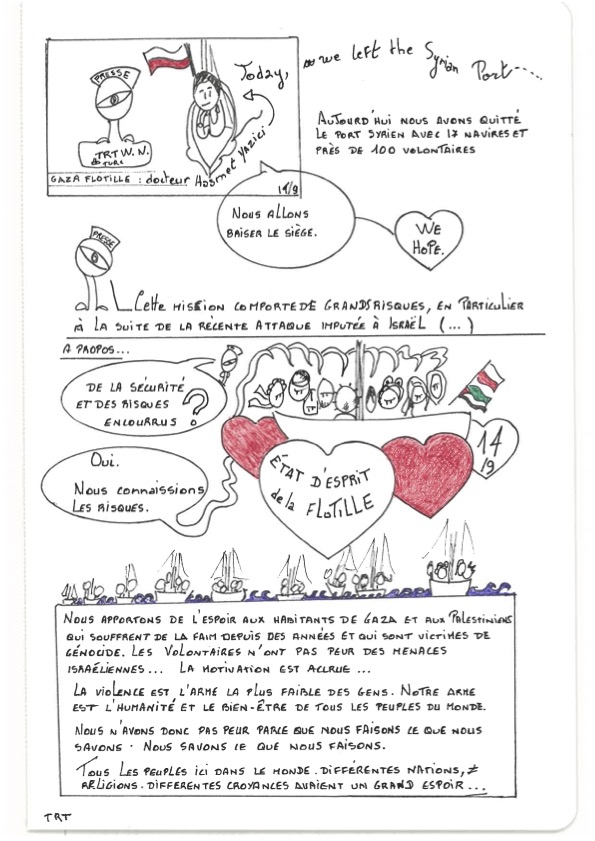 PRESSE
Today,
we left the Syrian Port.....
TRT W.N.
GAZA FLOTILLE : docteur Hasmet Yazici
14/9
AUJOURD'HUI NOUS AVONS QUITTÉ
LE PORT SYRIEN AVEC 17 NAVIRES ET
PRÈS DE 100 VOLONTAIRES
NOUS ALLONS
BRISER LE SIÈGE.
WE
HOPE.
PRESSE
Cette MISSION COMPORTE DE GRANDS RISQUES, EN PARTICULIER
À LA SUITE DE LA RÉCENTE ATTAQUE IMPUTÉE À ISRAËL (...)
A PROPOS...
DE LA SÉCURITÉ
ET DES RISQUES
ENCOURRUS ?
OUI.
NOUS CONNAISSIONS
LES RISQUES.
14
/9
ÉTAT D'ESPRIT
de la FLOTILLE
NOUS APPORTONS DE L'ESPOIR AUX HABITANTS DE GAZA ET AUX PALESTINIENS
QUI SOUFFRENT DE LA FAIM DEPUIS DES ANNÉES ET QUI SONT VICTIMES DE
GÉNOCIDE. LES VOLONTAIRES N'ONT PAS PEUR DES MENACES
ISRAÉLIENNES... LA MOTIVATION EST ACCRUE ...
LA VIOLENCE EST L'ARME LA PLUS FAIBLE DES GENS. NOTRE ARME
EST L'HUMANITÉ ET LE BIEN-ÊTRE DE TOUS LES PEUPLES DU MONDE.
NOUS N'AVONS DONC PAS PEUR PARCE QUE NOUS FAISONS CE QUE NOUS
SAVONS. NOUS SAVONS CE QUE NOUS FAISONS.
TOUS LES PEUPLES ICI DANS LE MONDE. DIFFÉRENTES NATIONS, ≠
RELIGIONS. DIFFERENTES CROYANCES AVAIENT UN GRAND ESPOIR...
TRT